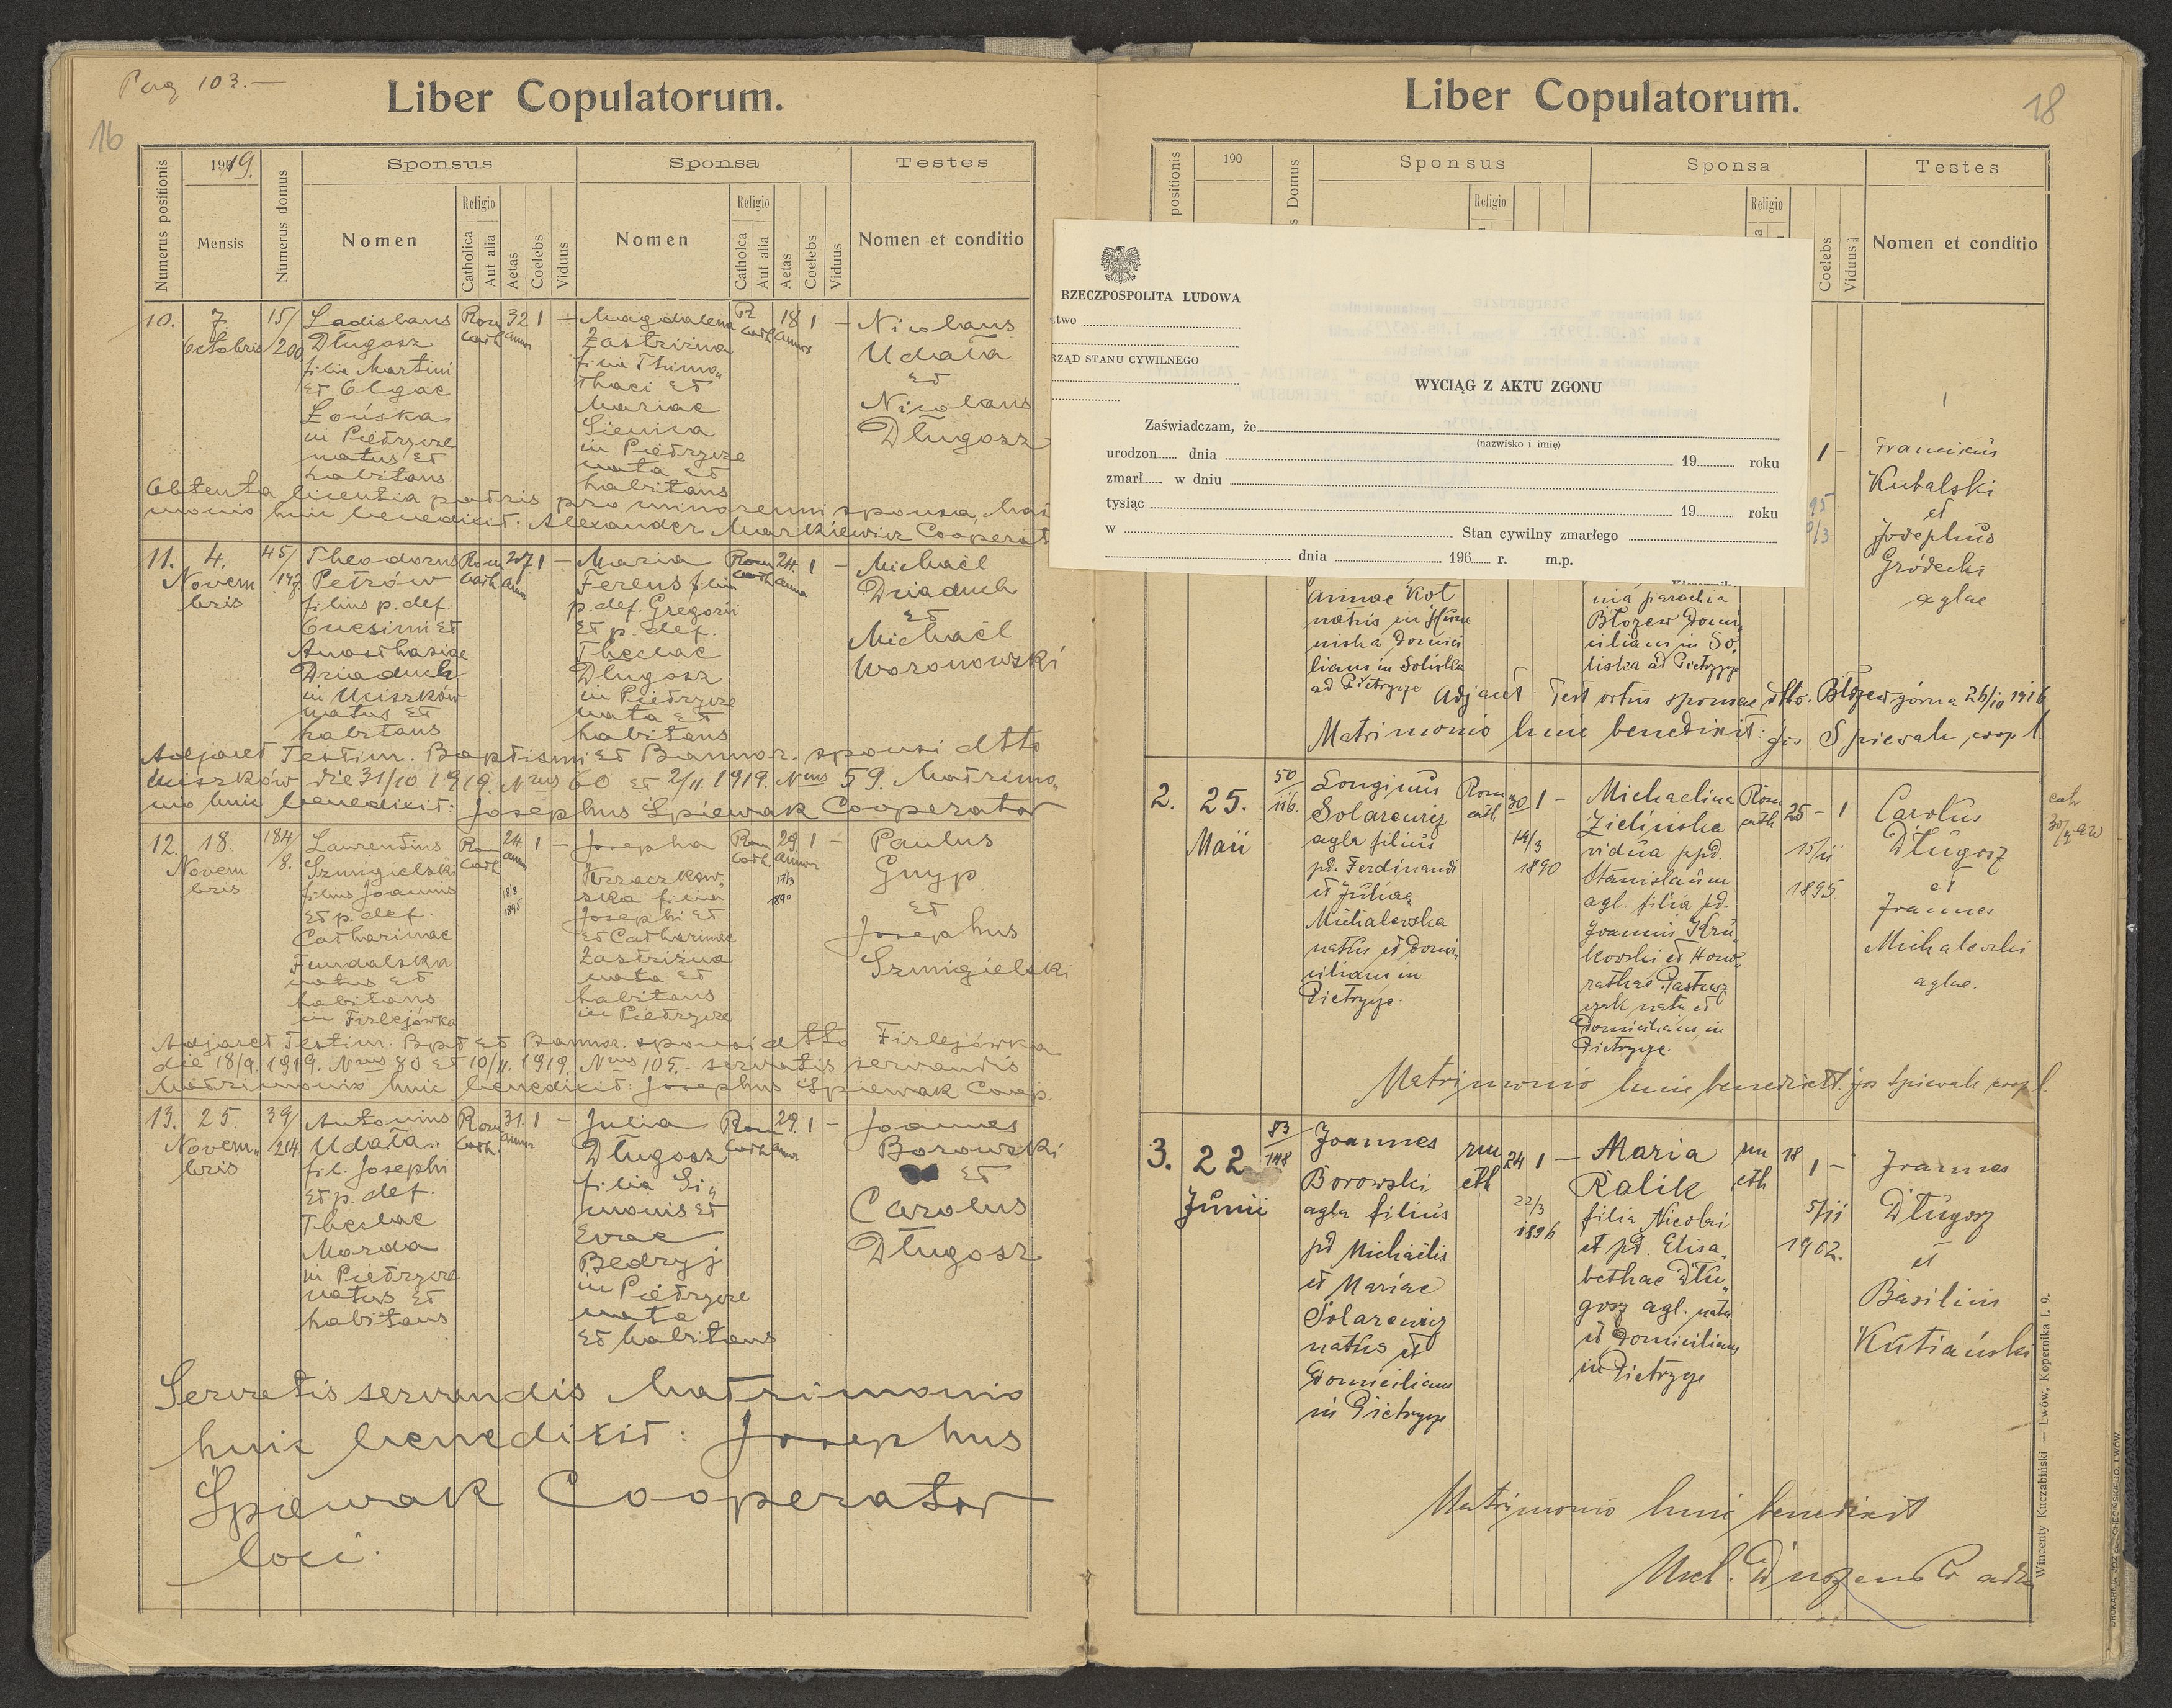 Pag 103.—
16
Liber Copulatorum.
Numerus positionis
1909 19.
Mensis
Numerus domus
Sponsus
Nomen
Religio
Catholica
Aut alia
Aetas
Coelebs
Viduus
Sponsa
Nomen
Religio
Catholca
Aut alia
Aetas
Coelebs
Viduus
Testes
Nomen et conditio
10.
7.
Octobris
15/
200
Ladislaus
Długosz
filius Martini
et Olgae
Łońska
in Pietrycze
natus et
habitans
Rom
cath
32
annor
1
—
Magdalena
Zastrizna
filia Thimo„
thaei et
Mariae
Sienica
in Pietrycze
nata et
habitans
R
cath
18
annor
1
—
Nicolaus
Udała
et
Nicolaus
Długosz
Obtenta licentia patris pro minorenni sponsa, hui
monio huic benedixit: Alexander Markiewicz Cooperat
11.
4.
Novem
bris
45/
147.
Theodorus
Petrów
filius p. def.
Onesimi et
Anasthasiae
Dziaduch
in Uciszków
natus et
habitans
Rom
cath
27
annor
1
—
Maria
Ferens filia
p. def. Gregorii
et p. def.
Theclae
Długosz
in Pietrycze
nata et
habitans
Rom
cath
24.
annor
1
—
Michaël
Dziaduch
et
Michaël
Woronowski
Adjacet Testim. Baptismi et Bannor. sponsi dtto
Uciszków die 31/10 1919. Nrus 60 et 2/11. 1919. Nrus 59. Matrimo„
nio huic benedixit: Josephus Śpiewak Cooperator
12.
18.
Novem
bris
184/
8.
Laurentius
Szmigielski
filius Joannis
et p. def.
Catharinae
Fundalska
natus et
habitans
in Firlejówka
Rom
cath
24
annor
8/8
1895
1
—
Josepha
Trzaczkow„
ska filia
Josephi et
et Catharinae
Zastrizna
nata et
habitans
in Pietrycze
Rom
cath
29.
annor
17/3
1890
1
—
Paulus
Gnyp
et
Josephus
Szmigielski
Adjacet Testim. Bpt et Bannor. sponsi dtto Firlejówka
die 18/9. 1919. Nrus 80 et 10/11. 1919. Nrus 105.- servatis servandis
Matrimonio huic benedixit: Josephus Śpiewak Coop.
13.
25.
Novem„
bris
39/
214
Antonius
Udała
fil. Josephi
et p. def.
Theclae
Marda
in Pietrycze
natus et
habitans
Rom
cath.
31.
annor
1
—
Julia
Długosz
filia Si„
monis et
Evae
Bedryj
in Pietrycze
nata
et habitans
Rom
cath
29.
annor
1
—
Joannes
Borowski
et
Carolus
Długosz
Servatis servandis Matrimonio
huic benedixit: Josephus
Śpiewak Cooperator
loci.
Liber Copulatorum.
18
positionis
190
s Domus
Sponsus
Religio
Sponsa
Religio
Coelebs
Viduus
Testes
Nomen et conditio
RZECZPOSPOLITA LUDOWA
two
RZĄD STANU CYWILNEGO
WYCIĄG Z AKTU ZGONU
Zaświadczam, że
(nazwisko i imię)
urodzon dnia 19 roku
zmarł w dniu
tysiąc 19 roku
w Stan cywilny zmarłego
dnia 196 r. m.p.
Annae Kot
natus in
niska domici
lians in Soliska
ad Pietrycze
nia parochia
Błozew Domi„
cilians in So„
liska ad Pietrycze
95
1
—
Franciscus
Kubalski
et
Josephus
Gródecki
aglae
Adjacet Test ortus sponsae dtto. Błozew górna 26/10 1916
Matrimonio huic benedixit: Jos Spiewak coop l
2.
25.
Maii
50
116.
Longinus
Solarewicz
agla filius
pd. Ferdinandi
et Juliae
Michalewska
natus et domi„
cilians in
Pietrycze.
Rom
cath
30
14/3
1890
1
—
Michaelina
Zielińska
vidua ppd.
Stanislaum
agl. filia pd.
Joannis Kru„
kowski et Hono„
rathae Pastusz
czak nata et
Domicilians in
Pietrycze.
Rom
cath
25
15/11
1895.
—
1
Carolus
Długosz
et
Joannes
Michalewski
aglae.
Matrimonio huic benedixit. Jos Spiewak coop l.
3.
22
Junii
83
148
Joannes
Borowski
agla filius
pd Michaëlis
et Mariae
Solarewicz
natus et
Domicilians
in Pietrycze
rm
cth
24
22/3
1896
1
—
Maria
Ralik
filia Nicolai
et pd. Elisa„
bethae Dłu„
gosz agl. nata
et Domicilians
in Pietrycze
rm
cth
18
5/11
1902.
1
—
Joannes
Długosz
et
Basilius
Kutiański
Matrimonio huic benedixit
Wincenty Kuczabiński — Lwów, Kopernika l. 9.